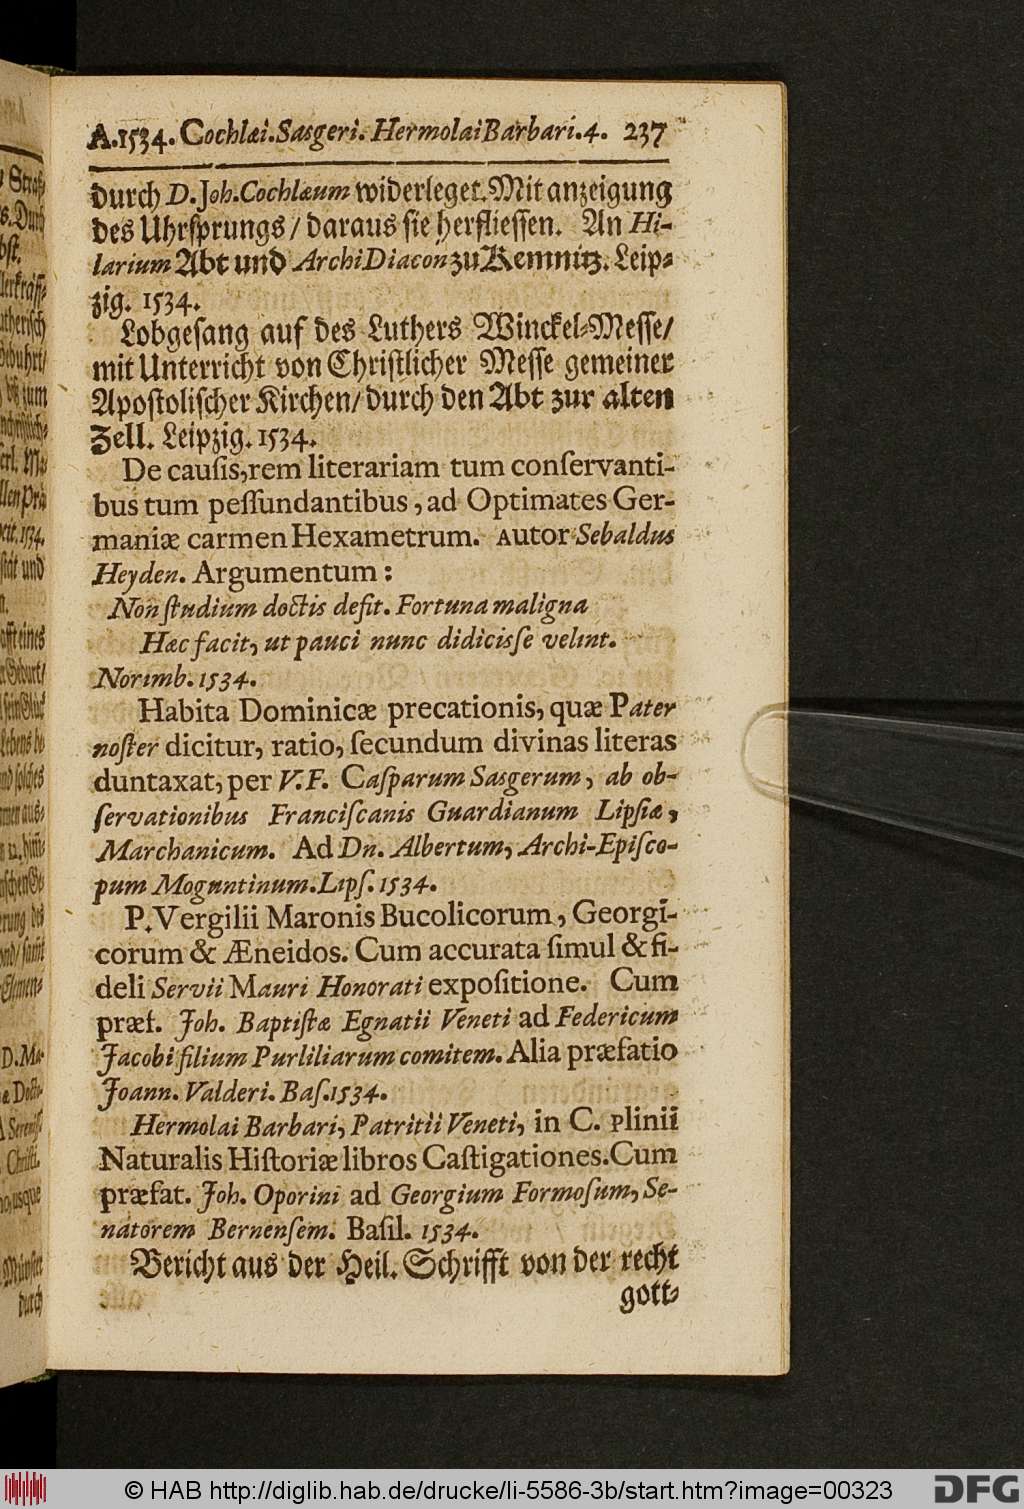 A. 1534. Cochlæi. Sasgeri. Hermolai Barbari. 4. 237
durch D. Joh. Cochlæum widerleget. Mit anzeigung
des Uhrsprungs / daraus sie herfliessen. An Hi-
larium Abt und ArchiDiacon zu Kemnitz. Leip-
zig. 1534.
Lobgesang auf des Luthers Winckel-Messe/
mit Unterricht von Christlicher Messe gemeiner
Apostolischer Kirchen/ durch den Abt zur alten
Zell. Leipzig. 1534.
De causis, rem literariam tum conservanti-
bus tum pessundantibus, ad Optimates Ger-
maniæ carmen Hexametrum. Autor Sebaldus
Heyden. Argumentum:
Non studium doctis defit. Fortuna maligna
Hæc facit, ut pauci nunc didicisse velint.
Norimb. 1534.
Habita Dominicæ precationis, quæ Pater
noster dicitur, ratio, secundum divinas literas
duntaxat, per V. F. Casparum Sasgerum, ab ob-
servationibus Franciscanis Guardianum Lipsiæ,
Marchanicum. Ad Dn. Albertum, Archi-Episco-
pum Moguntinum. Lips. 1534.
P. Vergilii Maronis Bucolicorum, Georgi-
corum & Æneidos. Cum accurata simul & fi-
deli Servii Mauri Honorati expositione. Cum
præf. Joh. Baptistæ Egnatii Veneti ad Federicum
Jacobi filium Purliliarum comitem. Alia præfatio
Joann. Valderi. Bas. 1534.
Hermolai Barbari, Patritii Veneti, in C. Plinii
Naturalis Historiæ libros Castigationes. Cum
præfat. Joh. Oporini ad Georgium Formosum, Se-
natorem Bernensem. Basil. 1534.
Bericht aus der Heil. Schrifft von der recht
gott-
© HAB http://diglib.hab.de/drucke/li-5586-3b/start.htm?image=00323
DFG